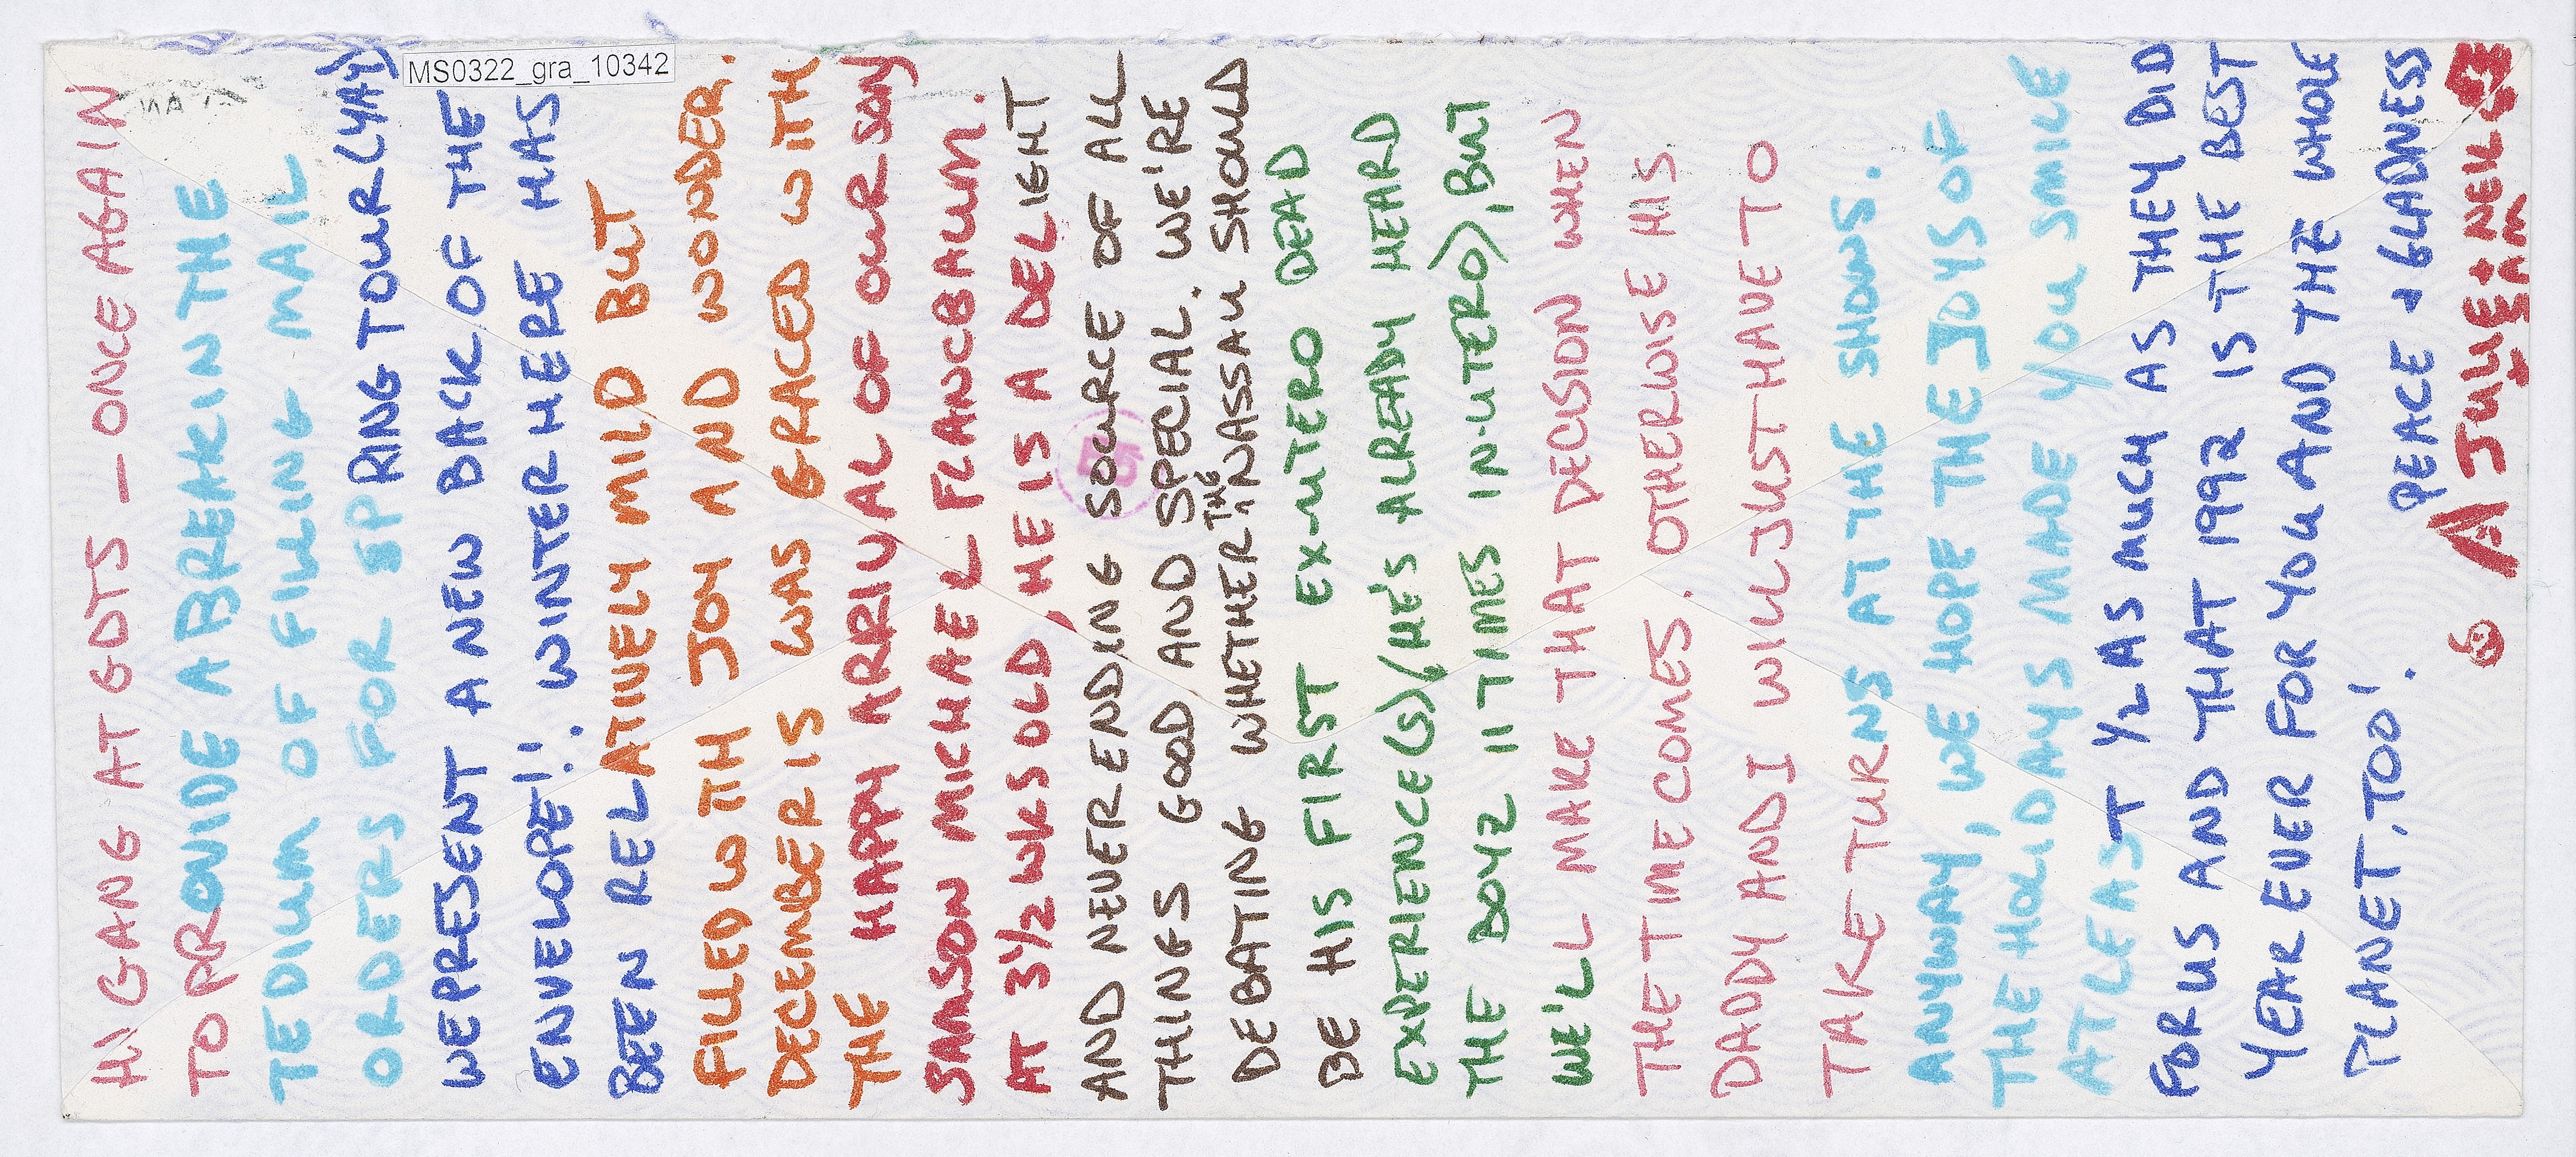 HI GANG AT GDTS — ONCE AGAIN
TO PROVIDE A BREAK IN THE
TEDIUM OF FILLING MAIL
ORDERS FOR SPRING TOUR (YAY)
WE PRESENT A NEW BACK OF THE
ENVELOPE!!. WINTER HERE HAS
BEEN RELATIVELY MILD BUT
FILLED WITH JOY AND WONDER.
DECEMBER IS WAS GRACED WITH
THE HAPPY ARRIVAL OF OUR SON
SAMSON MICHAEL FLANCBAUM.
AT 3 1/2 WKS OLD, HE IS A DELIGHT
AND NEVER ENDING SOURCE OF ALL
THINGS GOOD AND SPECIAL. WE'RE
DEBATING WHETHER THE NASSAU SHOULD
BE HIS FIRST EX-UTERO DEAD
EXPERIENCE(S) (HE'S ALREADY HEARD
THE BOYZ 11 TIMES IN-UTERO), BUT
WE'LL MAKE THAT DECISION WHEN
THE TIME COMES. OTHERWISE HIS
DADDY AND I WILL JUST HAVE TO
TAKE TURNS AT THE SHOWS.
ANYWAY, WE HOPE THE JOYS OF
THE HOLIDAYS MADE YOU SMILE
AT LEAST 1/2 AS MUCH AS THEY DID
FOR US AND THAT 1992 IS THE BEST
YEAR EVER FOR YOU AND THE WHOLE
PLANET, TOO!. PEACE & GLADNESS
JULIE + NEIL
& SAM
MS0322_gra_10342